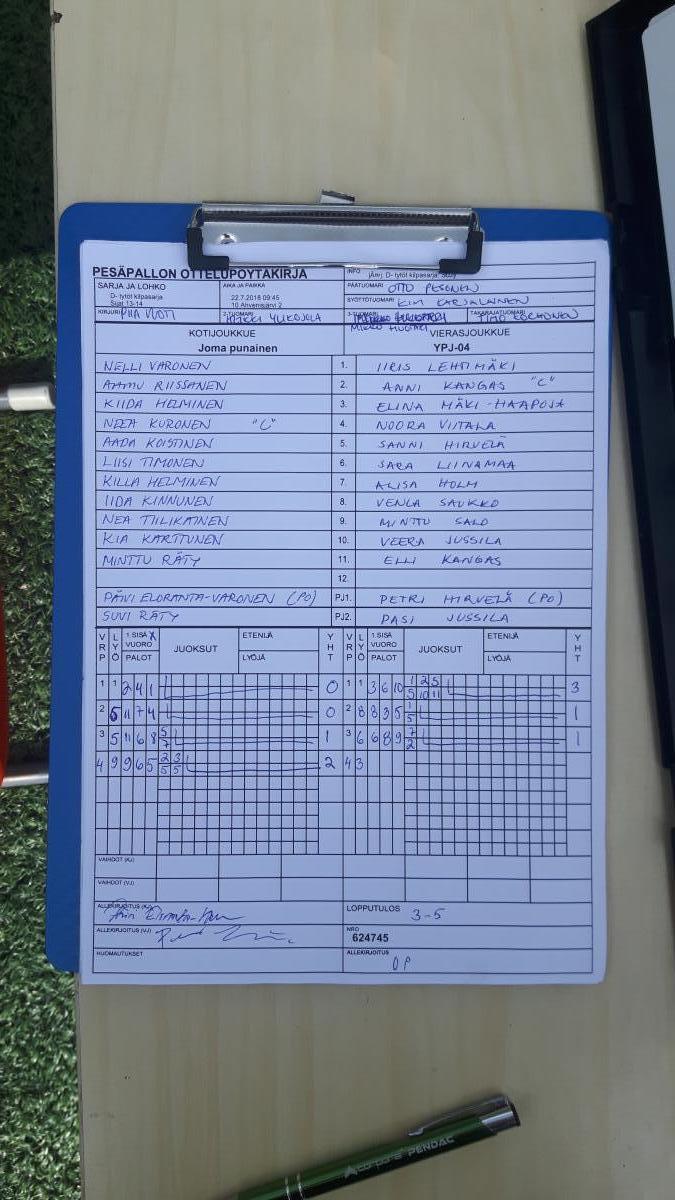 PESÄPALLON OTTELUPÖYTÄKIRJA
INFO
SARJA JA LOHKO
D- tytöt kilpasarja
Sijat 13-14
AIKA JA PAIKKA
22.7.2018 09:45
10 Ahvenisjärvi 2
PÄÄTUOMARI OTTO PESONEN
SYÖTTÖTUOMARI KIM KARJALAINEN
KIRJURI PIIA VUOTI
2-TUOMARI
3-TUOMARI
TAKARAJATUOMARI
KOTIJOUKKUE
VIERASJOUKKUE
Joma punainen
YPJ-04
NELLI VARONEN 1. IIRIS LEHTIMÄKI
AAMU RIISSANEN 2. ANNI KANGAS "C"
KIIDA HELMINEN 3. ELINA MÄKI-HAAPOJA
NEEA KURONEN "C" 4. NOORA VIITALA
AADA KOISTINEN 5. SANNI HIRVELÄ
LIISI TIMONEN 6. SARA LIINAMAA
KILLA HELMINEN 7. ALISA HOLM
IIDA KINNUNEN 8. VENLA SAUKKO
NEA TIILIKAINEN 9. MINTTU SALO
KIA KARTTUNEN 10. VEERA JUSSILA
MINTTU RÄTY 11. ELLI KANGAS
12.
PÄIVI ELORANTA-VARONEN (PO) PJ1. PETRI HIRVELÄ (PO)
SUVI RÄTY PJ2. PASI JUSSILA
VRP LYÖ 1.SISÄ X VUORO PALOT JUOKSUT ETENIJÄ LYÖJÄ YHT VRP LYÖ 1.SISÄ VUORO PALOT JUOKSUT ETENIJÄ LYÖJÄ YHT
1 1 2 4 1 0 1 1 3 6 10 1 2 5 3
5 10 11
2 5 11 7 4 0 2 8 8 3 5 1 1
5
3 5 11 6 8 5 1 3 6 6 8 9 7 1
7 2
4 9 9 6 5 2 3 2 4 3
5 5
VAIHDOT (KJ)
VAIHDOT (VJ)
ALLEKIRJOITUS (KJ)
LOPPUTULOS 3-5
ALLEKIRJOITUS (VJ)
NRO
624745
HUOMAUTUKSET
ALLEKIRJOITUS
OP
PENDAC